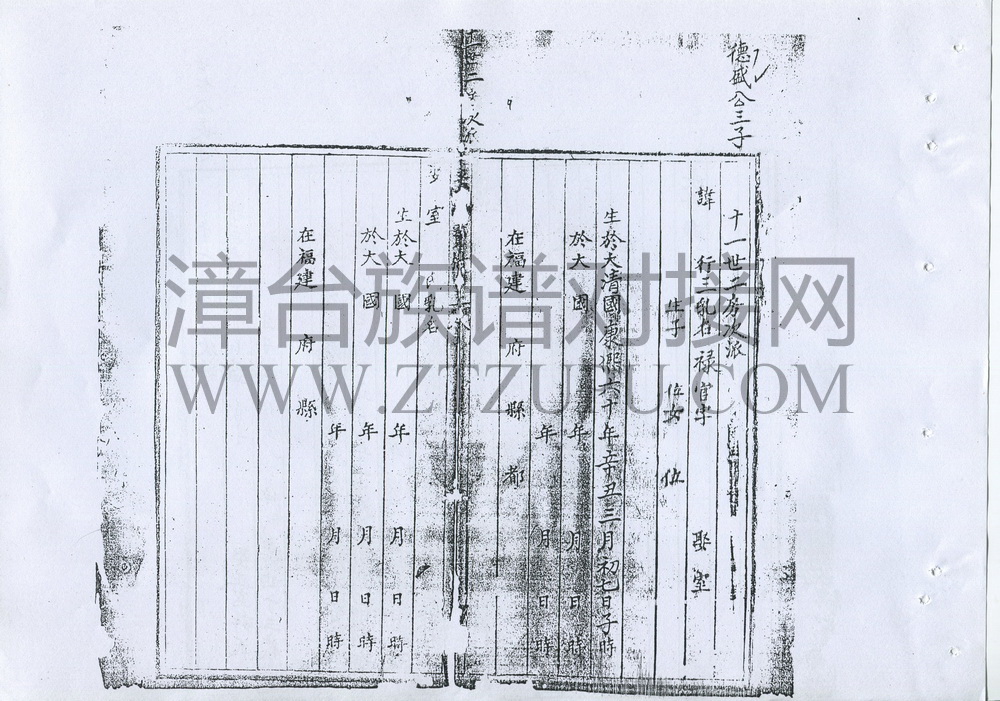 德盛公三子
十一世二房次派
諱 行三乳名禄官字 娶室
生子 位女 位
生於大清國康熙六十年辛丑三月初七日子時
於大 國 年 月 日 時
年 月 日 時
在福建 府 縣 都
室 乳名
生於大 國 年 月 日 時
於大 國 年 月 日 時
年 月 日 時
在福建 府 縣
漳台族谱对接网
WWW.ZTZUPU.COM